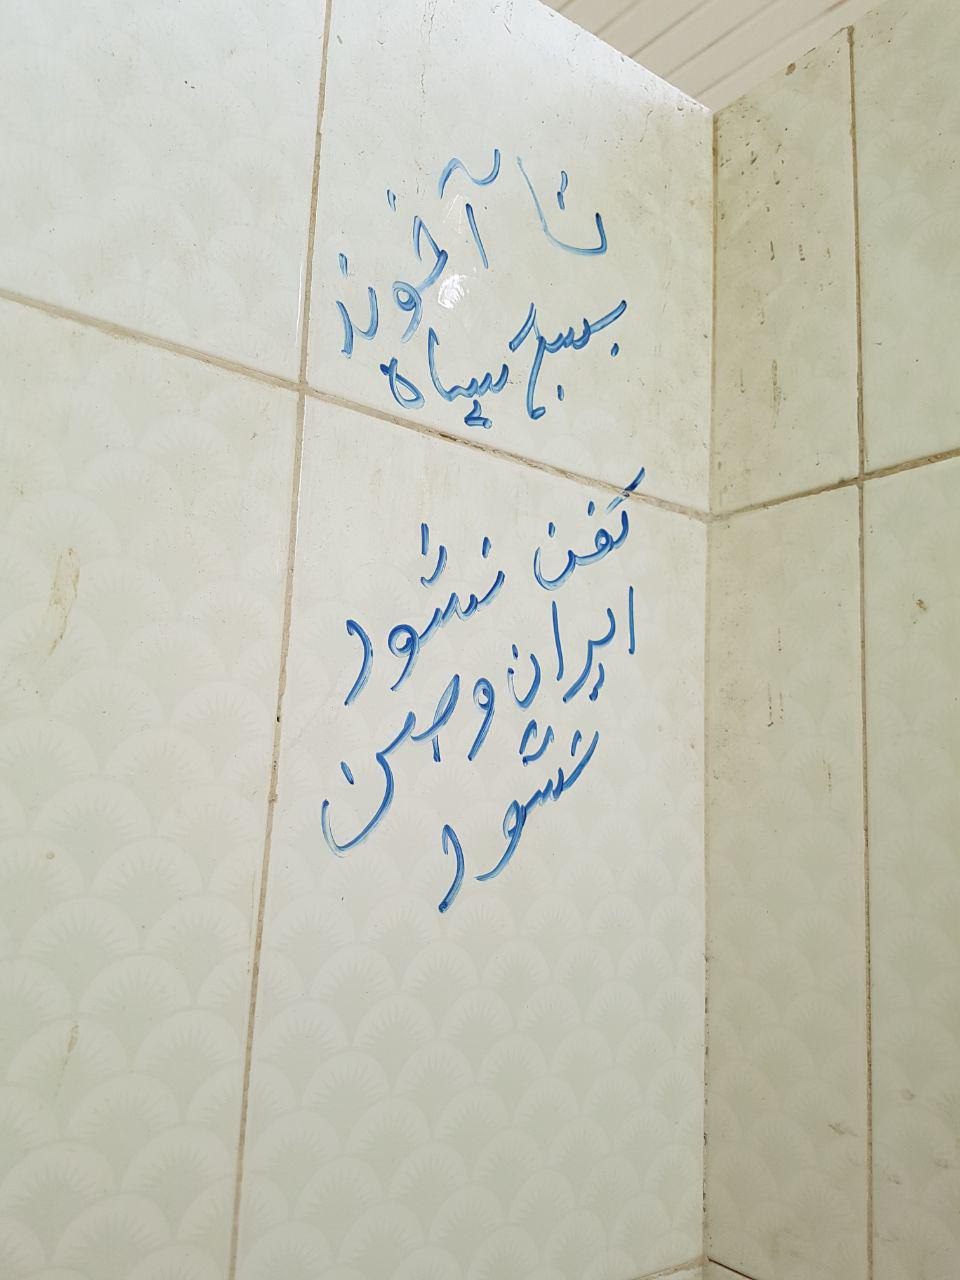 تا آخوند
بسیج سپاه
کفن نشود
ایران وطن
نشود